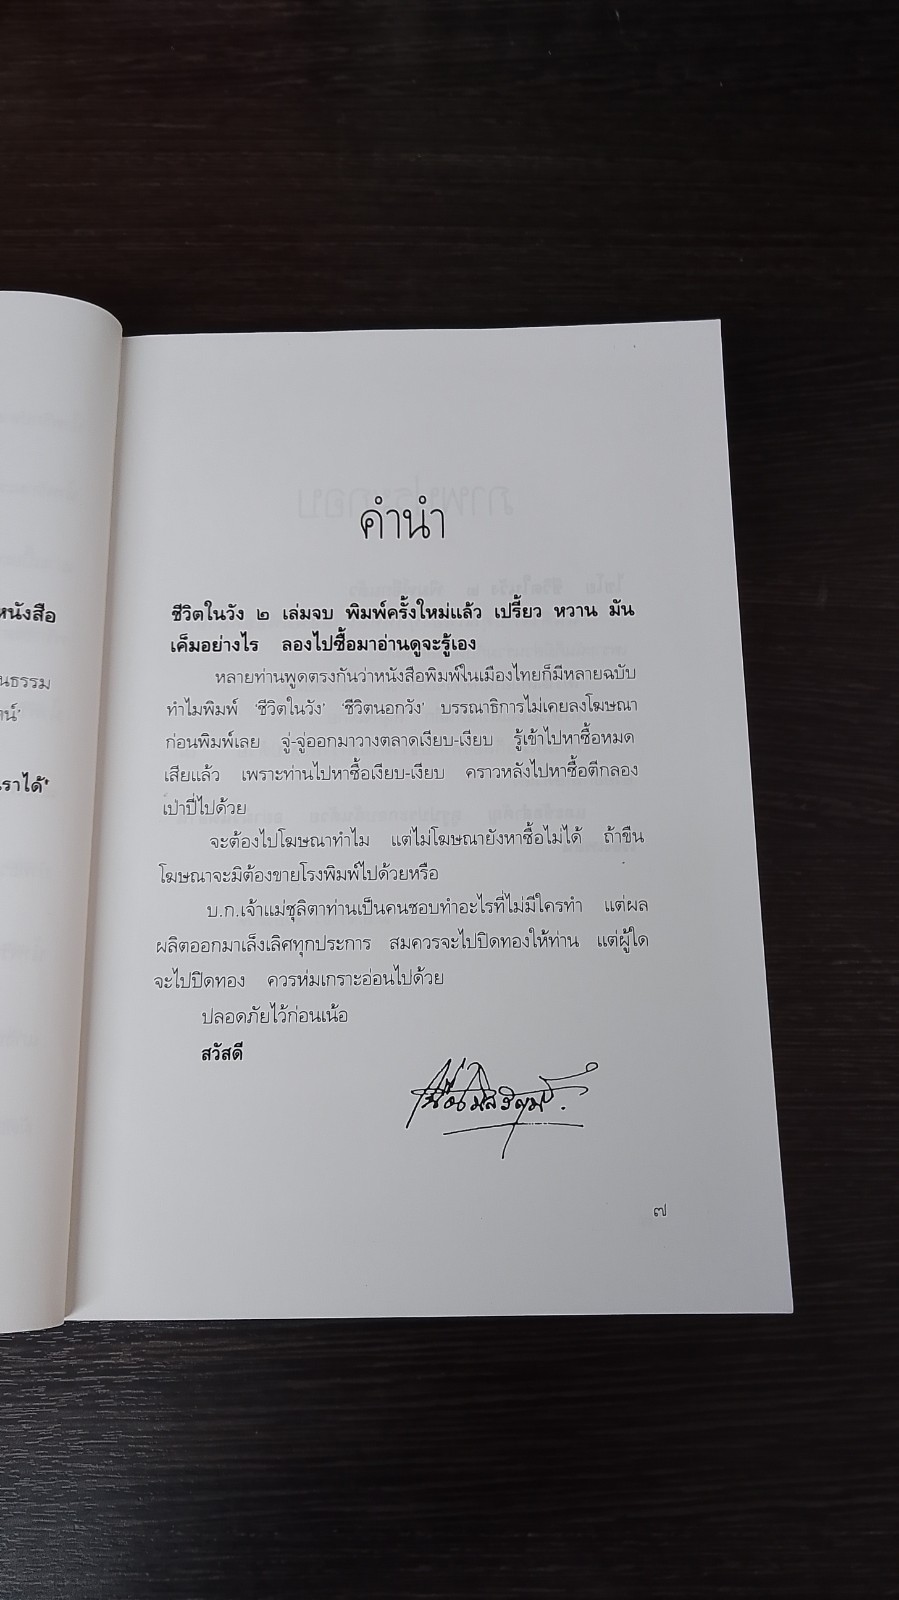 หนังสือ
นธรรม
ตน์'
ราได้"
คำนำ
ชีวิตในวัง ๒ เล่มจบ พิมพ์ครั้งใหม่แล้ว เปรี้ยว หวาน มัน
เค็มอย่างไร ลองไปซื้อมาอ่านดูจะรู้เอง
หลายท่านพูดตรงกันว่าหนังสือพิมพ์ในเมืองไทยก็มีหลายฉบับ
ทำไมพิมพ์ 'ชีวิตในวัง' 'ชีวิตนอกวัง' บรรณาธิการไม่เคยลงโฆษณา
ก่อนพิมพ์เลย จู่-จู่ออกมาวางตลาดเงียบ-เงียบ รู้เข้าไปหาซื้อหมด
เสียแล้ว เพราะท่านไปหาซื้อเงียบ-เงียบ คราวหลังไปหาซื้อตีกลอง
เป่าปี่ไปด้วย
จะต้องไปโฆษณาทำไม แต่ไม่โฆษณายังหาซื้อไม่ได้ ถ้าขืน
โฆษณาจะมิต้องขายโรงพิมพ์ไปด้วยหรือ
บ.ก.เจ้าแม่ชุลิตาท่านเป็นคนชอบทำอะไรที่ไม่มีใครทำ แต่ผล
ผลิตออกมาเล็งเลิศทุกประการ สมควรจะไปปิดทองให้ท่าน แต่ผู้ใด
จะไปปิดทอง ควรห่มเกราะอ่อนไปด้วย
ปลอดภัยไว้ก่อนเน้อ
สวัสดี
๗